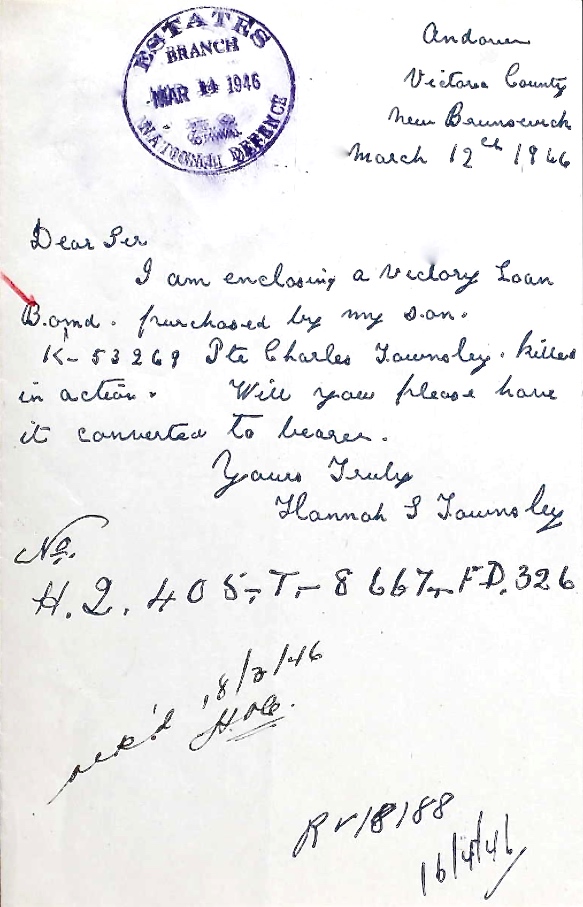 ESTATES
BRANCH
MAR 14 1946
OTTAWA
NATIONAL DEFENCE
Andover
Victoria County
New Brunswick
March 12th 1946
Dear Sir
I am enclosing a Victory Loan
Bond. purchased by my son.
K-53269 Pte Charles Townsley. killed
in action. Will you please have
it converted to bearer.
Yours Truly
Hannah S Townsley
No.
H.Q. 405-T-8667-FD.326
ack'd 18/3/46
16/4/46